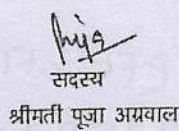 सदस्य
श्रीमती पूजा अग्रवाल